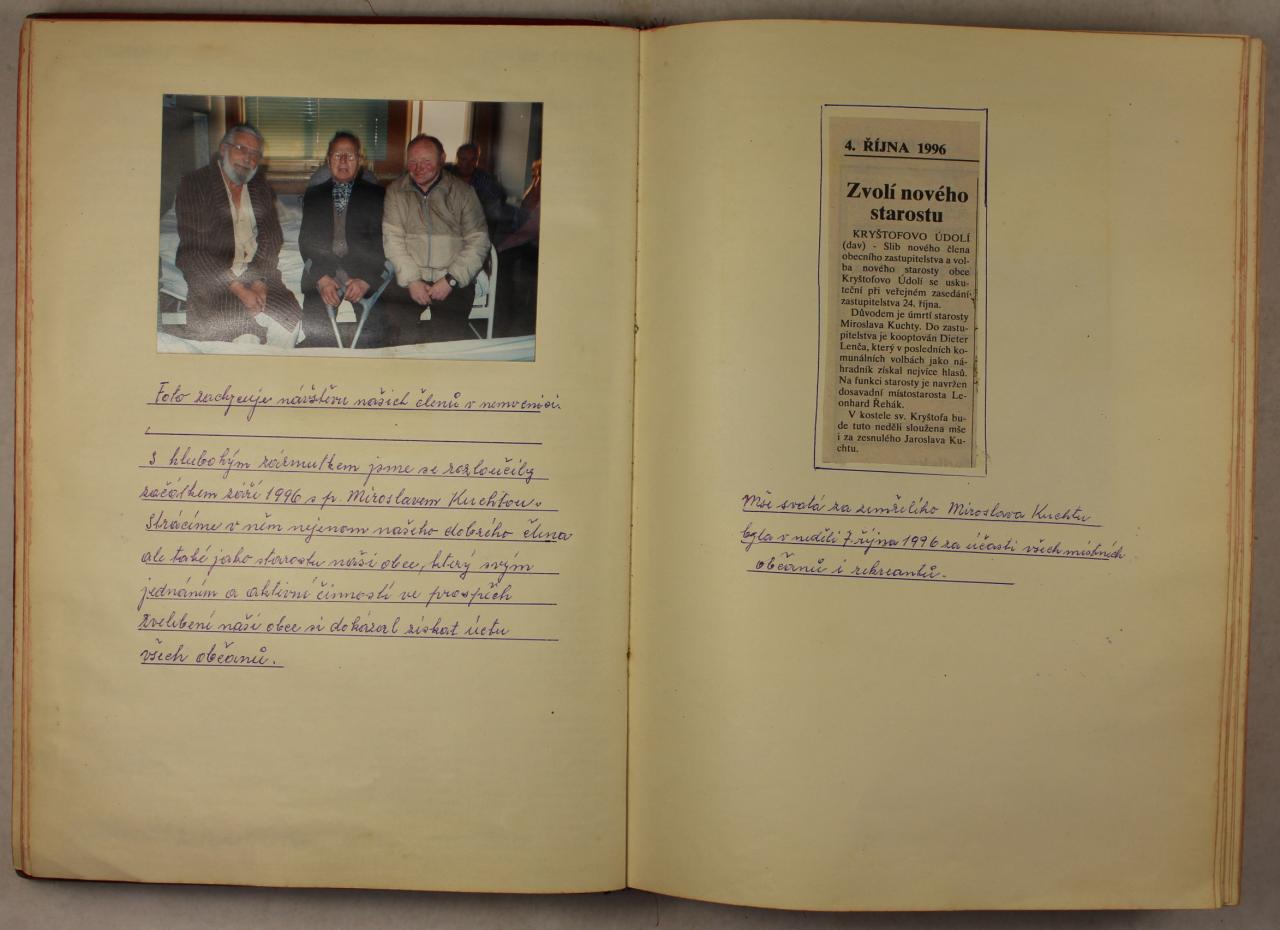 Foto zachycuje návštěvu našich členů v nemocnici.
S hlubokým zármutkem jsme se rozloučily
začátkem září 1996 s p. Miroslavem Kuchtou.
Strácíme v něm nejenom našeho dobrého člena
ale také jako starostu naší obce, který svým
jednáním a aktivní činností ve prospěch
zvelebení naší obce si dokázal získat úctu
všech občanů.
4. ŘÍJNA 1996
Zvolí nového
starostu
KRYŠTOFOVO ÚDOLÍ
(dav) - Slib nového člena
obecního zastupitelstva a vol-
ba nového starosty obce
Kryštofovo Údolí se usku-
teční při veřejném zasedání
zastupitelstva 24. října.
Důvodem je úmrtí starosty
Miroslava Kuchty. Do zastu-
pitelstva je kooptován Dieter
Lenča, který v posledních ko-
munálních volbách jako ná-
hradník získal nejvíce hlasů.
Na funkci starosty je navržen
dosavadní místostarosta Le-
onhard Řehák.
V kostele sv. Kryštofa bu-
de tuto neděli sloužena mše
i za zesnulého Jaroslava Ku-
chtu.
Mše svatá za zemřelého Miroslava Kuchtu
byla v neděli 7. října 1996 za účasti všech místních
občanů i rekreantů.